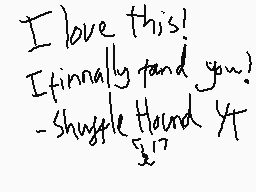 I love this!
I finnally fand you!
-Shuffle Hound YT